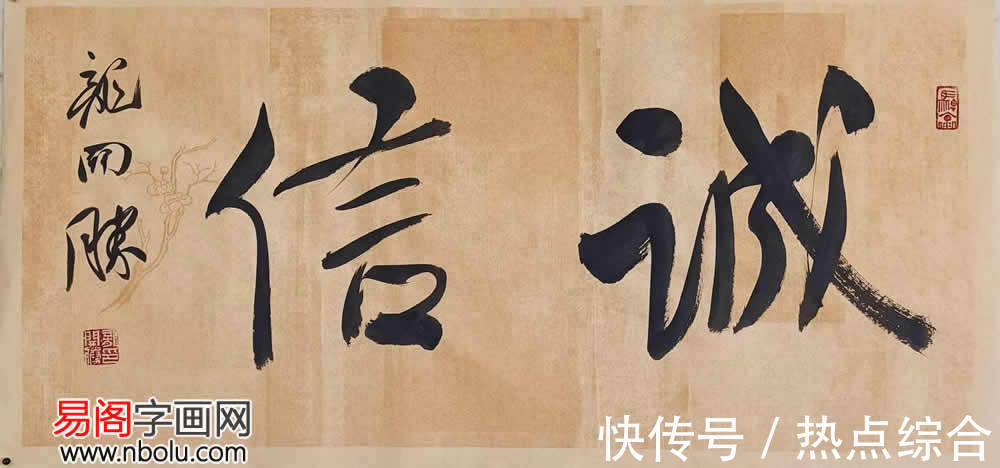 诚信
龍開勝
易阁字画网
www.nbolu.com
快传号 / 热点综合